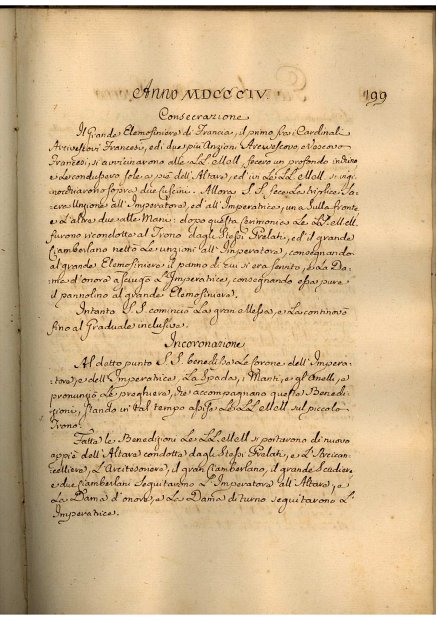 Anno MDCCCIV.
199
Consecrazione
Il Grande Elemosiniere di Francia, il primo fra i Cardinali
Arcivescovi Francesi, ed i due più Anziani Arcivescovo e Vescovo
Francesi, si avvicinarono alle LL. MM., fecero un profondo inchino
e Le condussero sole a piè dell'Altare, ed ivi Le LL. MM. si ingi-
nocchiarono sopra due cuscini. Allora S. S. fece La triplice Sa-
cra Unzione all'Imperatore, ed all'Imperatrice, una Sulla fronte
e L'altre due alle Mani: dopo questa ceremonia Le LL. MM.
furono ricondotte al Trono dagli Stessi Prelati, ed il grande
Ciamberlano nettò Le unzioni all'Imperatore, consegnando
al grande Elemosiniere il panno di cui si era servito, e La Da-
ma d'onore asciugò L'Imperatrice, consegnando essa pure
il pannolino al grande Elemosiniere.
Intanto S. S. cominciò La gran Messa, e La continovò
fino al Graduale inclusive.
Incoronazione
Al detto punto S. S. benedisse Le Corone dell'Impera-
tore, e dell'Imperatrice, La Spada, i Manti, e gl'Anelli, e
pronunziò Le preghiere, che accompagnano queste Benedi-
zioni, Stando in tal tempo assise Le LL. MM. sul piccolo
Trono.
Fatte le Benedizioni Le LL. MM. si portarono di nuovo
appiè dell'Altare condotte dagli Stessi Prelati, e L'Arcican-
celliere, L'Arcitesoriere, il gran Ciamberlano, il grande Scudiere,
e due Ciamberlani Seguitarono L'Imperatore all'Altare, e
La Dama d'onore, e La Dama di turno seguitarono L'
Imperatrice.